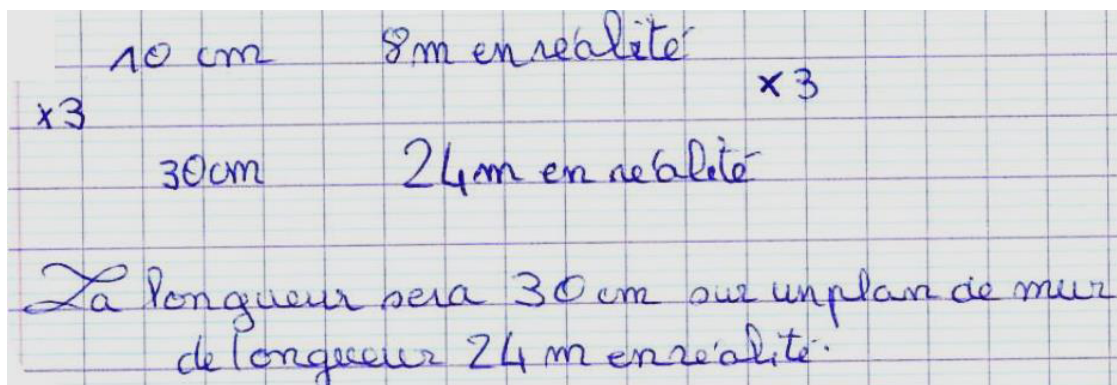 10 cm 8m en réalité
×3 ×3
30cm 24m en réalité
La longueur sera 30 cm sur un plan de mur
de longueur 24 m en réalité.